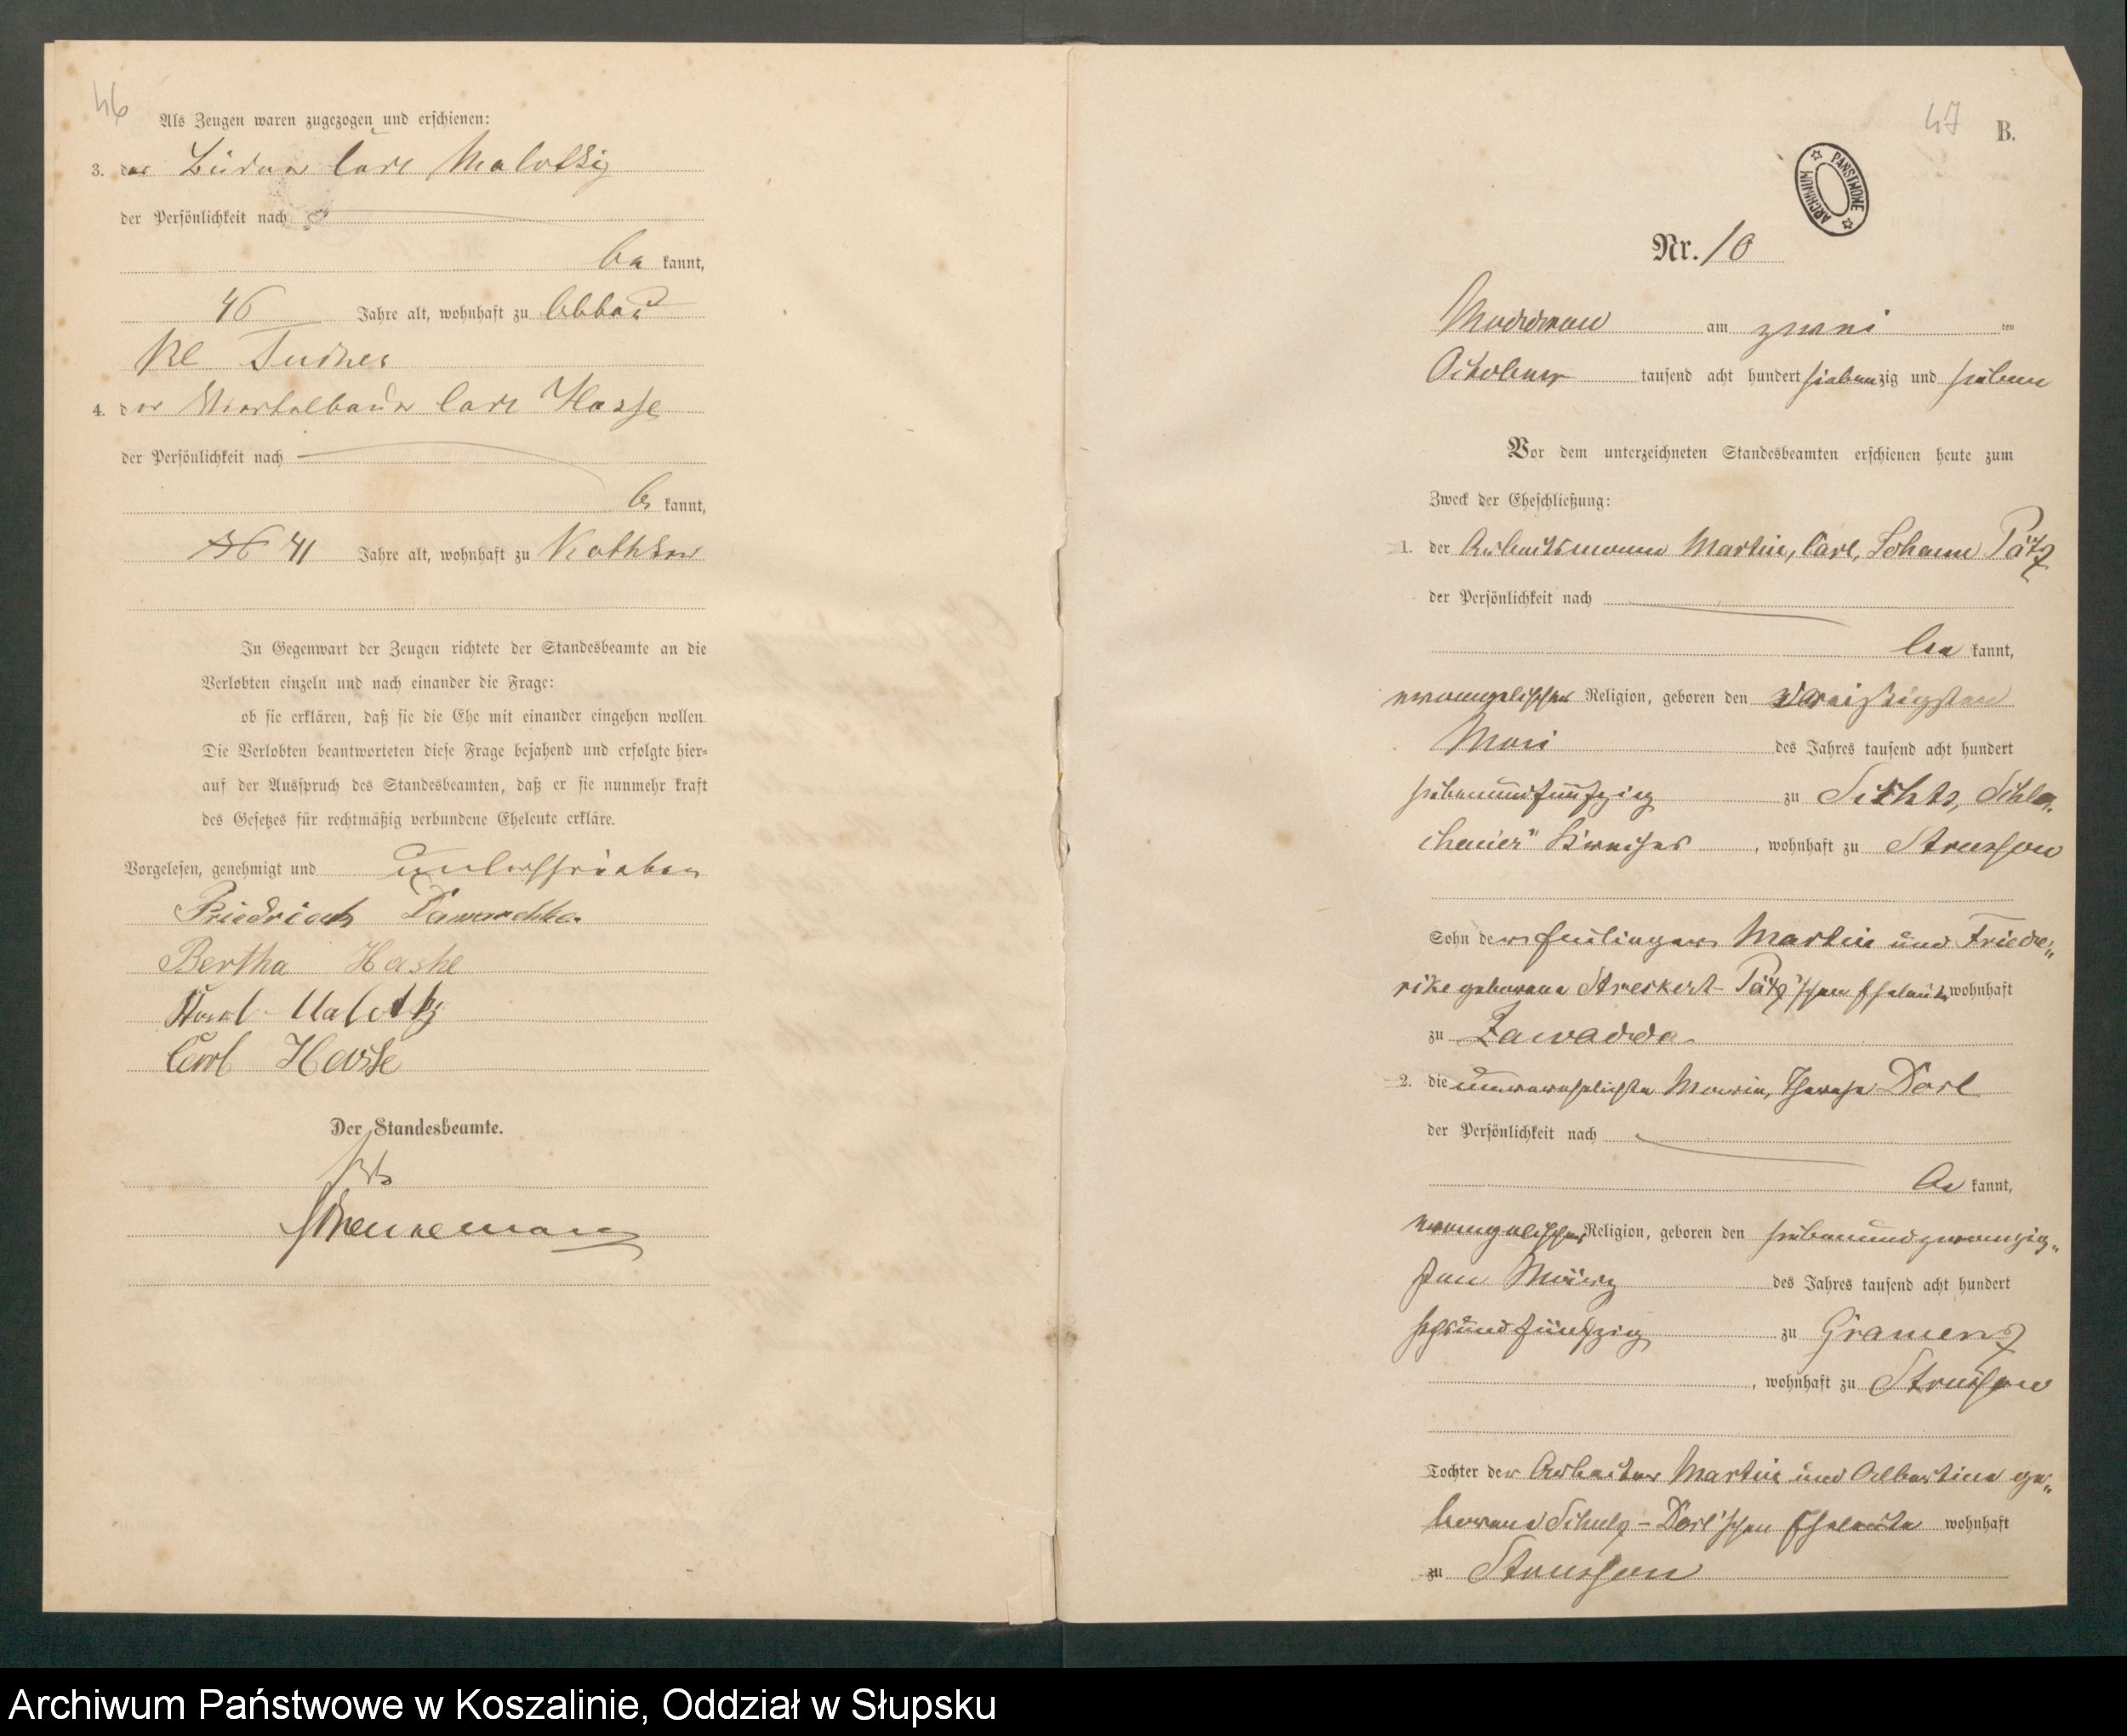 46
Als Zeugen waren zugezogen und erschienen:
3. der Büdner Carl Malottky
der Persönlichkeit nach
be kannt,
46 Jahre alt, wohnhaft zu Abbau
Kl Tuchen
4. der Viertelbauer Carl Hasse
der Persönlichkeit nach
be kannt,
36 41 Jahre alt, wohnhaft zu Kathkow
In Gegenwart der Zeugen richtete der Standesbeamte an die
Verlobten einzeln und nach einander die Frage:
ob sie erklären, daß sie die Ehe mit einander eingehen wollen.
Die Verlobten beantworteten diese Frage bejahend und erfolgte hier=
auf der Ausspruch des Standesbeamten, daß er sie nunmehr kraft
des Gesetzes für rechtmäßig verbundene Eheleute erkläre.
Vorgelesen, genehmigt und unterschrieben
Friedrich
Bertha Haske
Malotky
Carl Hasse
Der Standesbeamte.
47 B.
ARCHIWUM PAŃSTWOWE
Nr. 10
Moddrow am zwei ten
October tausend acht hundert siebenzig und sieben
Vor dem unterzeichneten Standesbeamten erschienen heute zum
Zweck der Eheschließung:
1. der Arbeitsmann Martin, Carl, Johann Pätz
der Persönlichkeit nach
be kannt,
evangelischer Religion, geboren den dreißigsten
Mai des Jahres tausend acht hundert
siebenundfünfzig zu Sichts, Schlo„
chauer" Kreises, wohnhaft zu Strussow
Sohn der Einlieger Martin und Friede„
rike geborene Streckert-Pätz'schen Eheleute wohnhaft
zu Zawadda
2. die unverehelichte Marie, Therese Dorl
der Persönlichkeit nach
be kannt,
evangelischer Religion, geboren den siebenundzwanzig„
sten März des Jahres tausend acht hundert
sechsundfünfzig zu Gramenz
, wohnhaft zu Strussow
Tochter der Arbeiter Martin und Albertine ge„
borene Schulz-Dorl'schen Eheleute wohnhaft
zu Strussow
Archiwum Państwowe w Koszalinie, Oddział w Słupsku